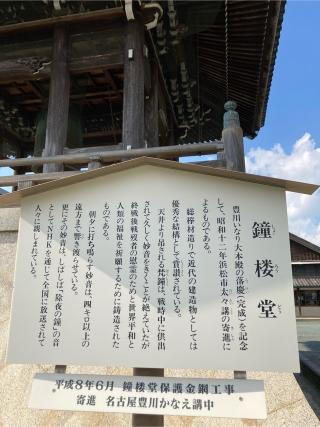 鐘楼堂
しょうろうどう
豊川いなり大本殿の落慶(完成)を記念
して、昭和十二年浜松市太々講の寄進に
よるものである。
総欅材造りで近代の建造物としては
優秀な結構として賞讃されている。
天井より吊される梵鐘は、戦時中に供出
されて久しく妙音をきくことが絶えていたが
終戦後戦歿者の慰霊のためと世界平和と
人類の福祉を祈願するために鋳造された
ものである。
朝夕に打ち鳴らす妙音は、四キロ以上の
遠方まで響き渡らせている。
更にその妙音は、しばしば、「除夜の鐘」の音
としてNHKを通じて全国に放送されて
人々に親しまれている。
平成8年6月 鐘楼堂保護金鋼工事
寄進 名古屋豊川かなえ講中